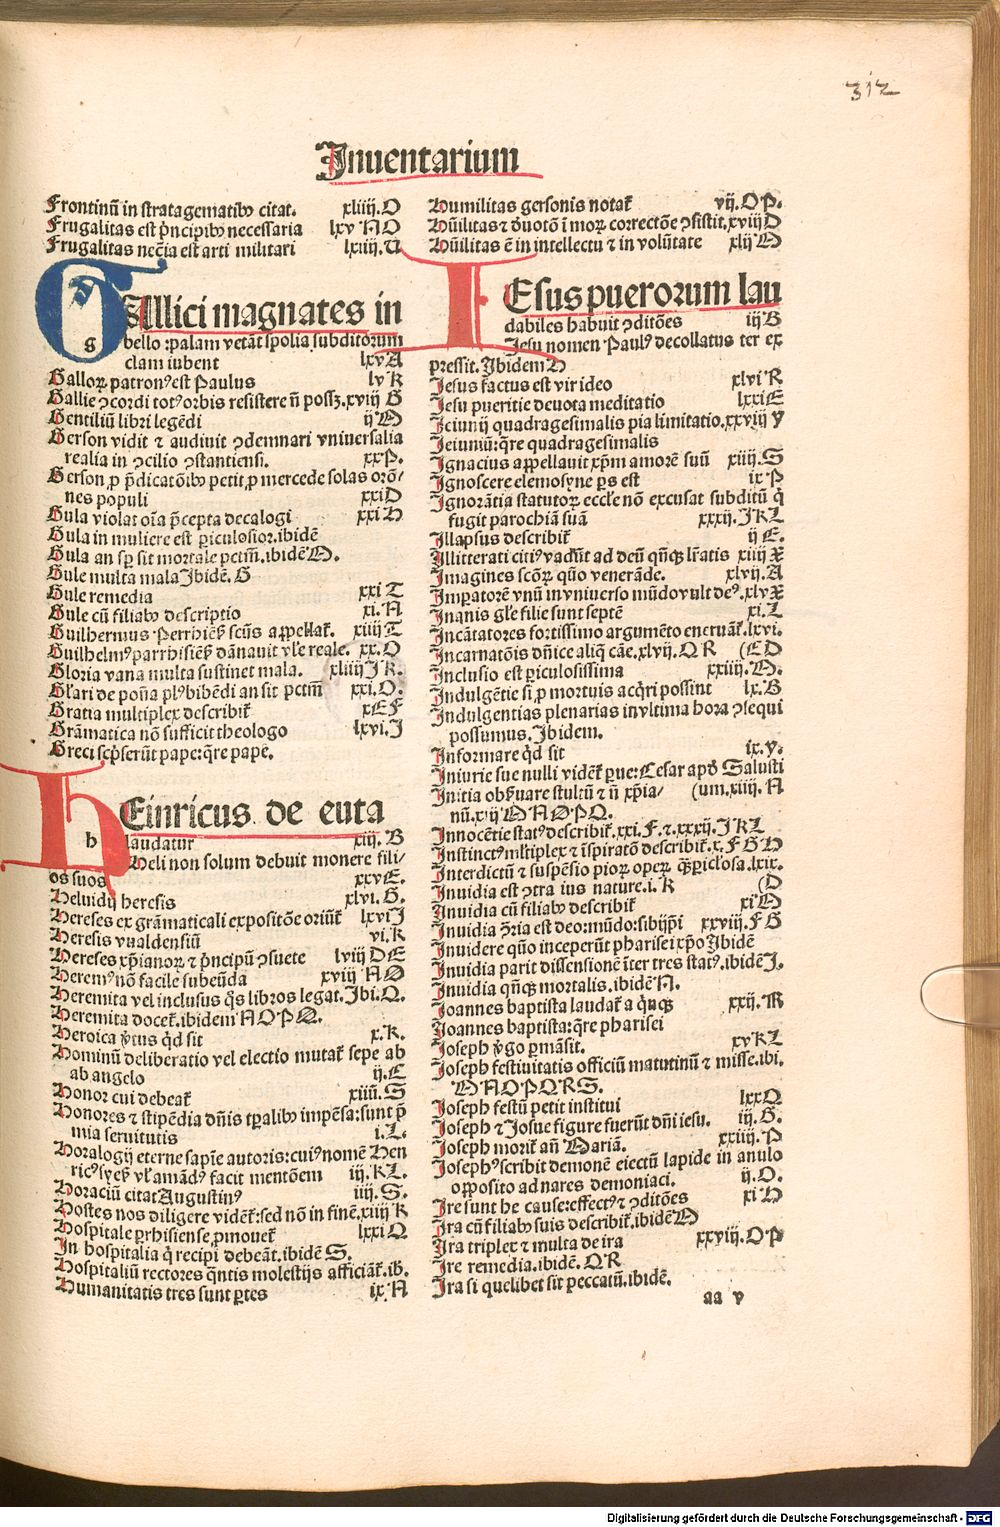 312
Inuentarium
Frontinū in stratagematibꝰ citat. xliiij.O
Frugalitas est pͥncipibꝰ necessaria lxv NO
Frugalitas necͥia est arti militari lxiiij.U
GAllici magnates in
g bello ꝛpalam vetāt spolia subditorum
clam iubent lxv A
Galloꝝ patronꝰest Paulus lv K
Gallie ꝯcordi totꝰorbis resistere nō possꝫ.xviij G
Gentiliū libri legēdi ij M
Gerson vidit ⁊ audiuit ꝯdemnari vniuersalia
realia in ꝯcilio ꝯstantiensi. xxP.
Gerson ꝓ p̄dicatōibꝰ petit ꝓ mercede solas orō⸗
nes populi xxi D
Gula violat oīa p̄cepta decalogi xxi H
Gula in muliere est ꝑiculosior.ibidē
Gula an sꝑ sit mortale pctm̄.ibidē M.
Gule multa mala Ibidē. G
Gule remedia xxi T
Gule cū filiabꝰ descriptio xi.N
Guilhermus Perrhiēs̄ scͥius appellat̄. xiiij T
Guilhelmꝰ parrhisiēs̄ dānauit vl̄e reale. xx.O
Gloria vana multa sustinet mala. xliiij I K.
Gl̄ari de pōna plꝰbibēdi an sit pctm̄ xxi.O.
Gratia multiplex describit̄ xEF
Grāmatica nō sufficit theologo lxvi.I
Greci scͥpserūt pape:q̄re pape.
HEinricus de euta
h laudatur xiij.B
Heli non solum debuit monere fili⸗
os suos xxvE.
Heluidij heresis xlvi.G.
Hereses ex grāmaticali expositōe oriūt̄ lxvi I
Heresis vualdensiū vi.K
Hereses xp̄ianoꝝ ⁊ pͥncipū ꝯsuete lviij DE
Heremꝰ nō facile subeūda xviij NO
Heremita vel inclusus qͥs libros legat.Ibi.Q.
Heremita docet̄.ibidem NOPQ.
Heroica v̓tus qͥd sit x.K.
Hominū deliberatio vel electio mutat̄ sepe ab
ab angelo ij.C
Honor cui debeat̄ xiiij.S
Honores ⁊ stipēdia dn̄is tꝑalibꝰ impēsa:sunt p̄
mia seruitutis i.L.
Horalogij eterne sapīe autoris:cuiꝰnomē Hen
ricꝰ facit mentōem iij.KL.
Horaciū citat Augustinꝰ iiij.S.
Hostes nos diligere vidēt̄:sed nō in finē.xiiij K
Hospitale ꝑrhisiense ꝓmouet̄ lxxi Q
In hospitalia qͥ recipi debeāt.ibidē S.
Hospitaliū rectores qͣntis molestijs afficiāt̄.ib.
Humanitatis tres sunt ꝑtes ix N
Humilitas gersonis notat̄ vij.OP.
Hūilitas ⁊ deuotō ī moꝝ correctōe ꝯsistit.xviij D
Hūilitas ē in intellectu ⁊ in volūtate xlij M
IEsus puerorum lau
dabiles habuit ꝯditōes iij B
Iesu nomen Paulꝰ decollatus ter ex
pressit.Ibidem H
Iesus factus est vir ideo xlvi R
Iesu pueritie deuota meditatio lxxi E
Ieiunij quadragesimalis pia limitatio.xxviij Y
Ieiuniū:q̄re quadragesimalis
Ignacius appellauit xp̄m amorē suū xiiij.S
Ignoscere elemosyne ꝑs est ix P
Ignorātia statutoꝝ eccl̄e nō excusat subditū qͥ
fugit parochiā suā xxxij.IKL
Illapsus describit̄ ij E.
Illitterati citiꝰ vadūt ad deū qͣnqꝫ lr̄atis xiiij X
Imagines scōꝝ quō venerāde. xlvij.A
Imꝑatorē vnū in vniuerso mūdo vult deꝰ.xlv X
Inanis gl̄e filie sunt septē xi.L
Incātatores fortissimo argumēto eneruāt̄.lxvi.
Incarnatōis dn̄ice aliqͣ cāe.xlvij.QR (CD
Inclusio est ꝑiculosissima xxiiij.M.
Indulgētie si ꝓ mortuis acqͥri possint lx.B
Indulgentias plenarias in vltima hora ꝯsequi
possumus.Ibidem.
Informare qͥd sit ix.Y.
Iniurie sue nulli vidēt̄ ꝑue:Cesar apꝰ Salusti
Initia obseruare stultū ⁊ nō xp̄ia⸗ (um.xiiij.N
nū.xvij MNOPQ.
Innocētie statꝰdescribit̄.xxi.F.⁊.xxxij.IKL
Instinctꝰml̄tiplex ⁊ īspiratō describit̄.x.FGH
Interdictū ⁊ suspēsio pioꝝ opeꝝ qͣꝫꝑicl̓osa.lxix.
Inuidia est ꝯtra ius nature.i.K (D
Inuidia cū filiabꝰ describit̄ xi M
Inuidia p̄ria est deo:mūdo:sibijpͥi xxviij.FG
Inuidere quō inceperūt pharisei xp̄o Ibidē
Inuidia parit dissensionē īter tres statꝰ.ibidē I.
Inuidia qͣnqꝫ mortalis.ibidē N.
Ioannes baptista laudat̄ a qͥnqꝫ xxij.M
Ioannes baptista:q̄re pharisei
Ioseph v̓go ꝑmāsit. xvKL
Ioseph festiuitatis officiū matutinū ⁊ misse.ibi.
MNOPQRS.
Ioseph festū petit institui lxxQ
Ioseph ⁊ Iosue figure fuerūt dn̄i iesu. iij.G.
Ioseph morit̄ an̄ Mariā. xxiiij.P
Iosephꝰscribit demonē eiectū lapide in anulo
opposito ad nares demoniaci. ij.O.
Ire sunt he cause:effectꝰ ⁊ ꝯditōes xi H
Ira cū filiabꝰ suis describit̄.ibidē M
Ira triplex ⁊ multa de ira xxviij.OP
Ire remedia.ibidē.QR
Ira si quelibet sit peccatū.ibidē.
aa v
Digitalisierung gefördert durch die Deutsche Forschungsgemeinschaft - DFG